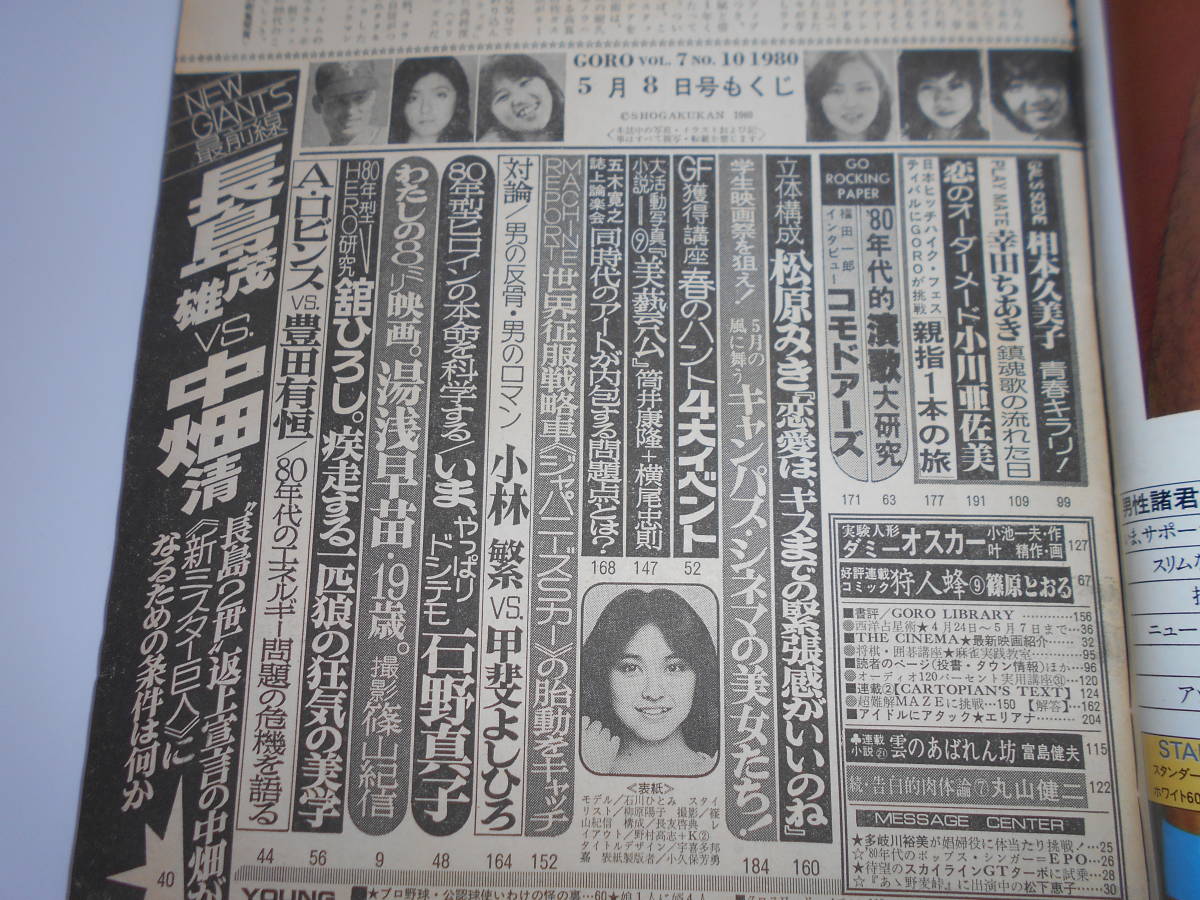 GORO VOL. 7 NO. 10 1980
5月8日号もくじ
©SHOGAKUKAN 1980
GO ROCKING PAPER
相本久美子 青春キラリ!
99
PLAY MATE 幸山ちあき 鎮魂歌の流れた日
109
恋のオーダーメード 小川亜佐美
191
日本ヒッチハイク・フェスティバルにGOROが挑戦 親指1本の旅
177
'80年代的演歌大研究
63
福田一郎インタビュー コモドアーズ
171
立体構成 松原みき『恋愛は、キスまでの緊張感がいいのね』
160
学生映画祭を狙え! 5月の風に舞う キャンパス・シネマの美女たち!
184
GF獲得講座 春のハント4大イベント
52
大活動写真小説―⑨『美藝公』筒井康隆+横尾忠則
147
五木寛之誌上論楽会 同時代のアートが内包する問題点とは?
168
MACHINE REPORT 世界征服戦略車《ジャパニーズSカー》の胎動をキャッチ
152
対論/男の反骨・男のロマン 小林繁 VS. 甲斐よしひろ
164
80年型ヒロインの本命を科学する/いま、やっぱりドシテモ 石野真子
48
わたしの8ミリ映画。湯浅早苗・19歳。撮影 篠山紀信
9
80年型HERO研究 Ⅳ 舘ひろし。疾走する一匹狼の狂気の美学
56
A・ロビンス VS. 豊田有恒/80年代のエネルギー問題の危機を語る
44
NEW GIANTS 最前線
長島茂雄 VS. 中畑清
“長島2世”返上宣言の中畑が
《新ミスター巨人》に
なるための条件は何か
40
実験人形 ダミーオスカー 小池一夫・作 叶精作・画 127
好評連載コミック 狩人蜂⑨ 篠原とおる 67
■書評/GORO LIBRARY 156
●西洋占星術★4月24日〜5月7日まで 36
■THE CINEMA★最新映画紹介 32
●将棋・囲碁講座★麻雀実践教室 95
■読者のページ(投書・タウン情報)ほか 96
●オーディオ120パーセント実用講座㉛ 120
■連載②【CARTOPIAN'S TEXT】 124
●超難解MAZEに挑戦…150【解答】…162
■アイドルにアタック★エリアナ 204
♣連載小説㉑ 雲のあばれん坊 富島健夫 115
続・告白的肉体論⑦ 丸山健二 122
MESSAGE CENTER
★多岐川裕美が娼婦役に体当たり挑戦! 25
☆'80年代のポップス・シンガー=EPO 26
★待望のスカイラインGTターボに試乗 28
☆『あゝ野麦峠』に出演中の松下恵子 30
<表紙>
モデル/石川ひとみ スタイ
リスト/柳原陽子 撮影/篠
山紀信 構成/長友啓典 レ
イアウト/野村高志+K②
タイトルデザイン/宇喜多邦
嘉 表紙製版者/小久保芳勇
YOUNG
★プロ野球・公認球使いわけの怪の裏…60
男性諸君
スリム
ニュー
スタンダー
ホワイト60